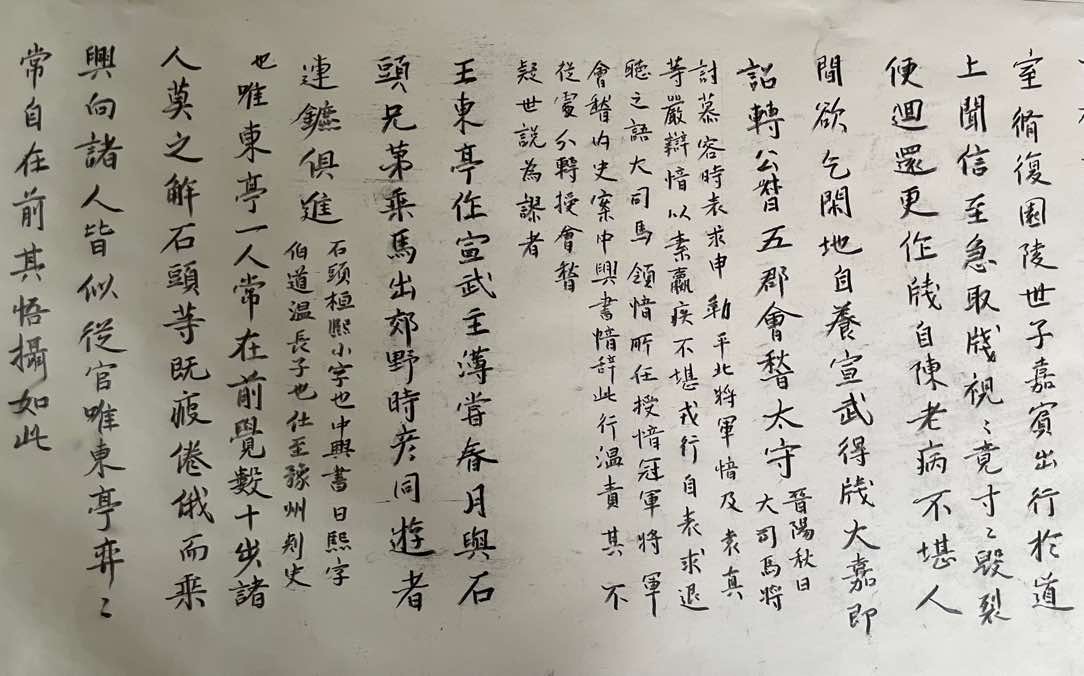 室脩復園陵世子嘉賓出行於道
上聞信至急取牋視〻竟寸〻毀裂
便迴還更作牋自陳老病不堪人
間欲乞閑地自養宣武得牋大嘉即
詔轉公督五郡會稽太守
晉陽秋曰
大司馬將
討慕容時表求申勒平北將軍愔及袁真
等嚴辯愔以素羸疾不堪戎行自表求退
聽之語大司馬領愔所任授愔冠軍將軍
會稽內史案中興書愔辞此行温責其不
從處分轉授會稽
疑世說為謬者
王東亭作宣武主薄嘗春月與石
頭兄第乗馬出郊野時彦同遊者
連鑣俱進
石頭桓熙小字也中興書曰熙字
伯道温長子也仕至豫州刾史
也唯東亭一人常在前覺數十步諸
人莫之解石頭等既疲倦俄而乗
輿向諸人皆似從官唯東亭弈〻
常自在前其悟攝如此